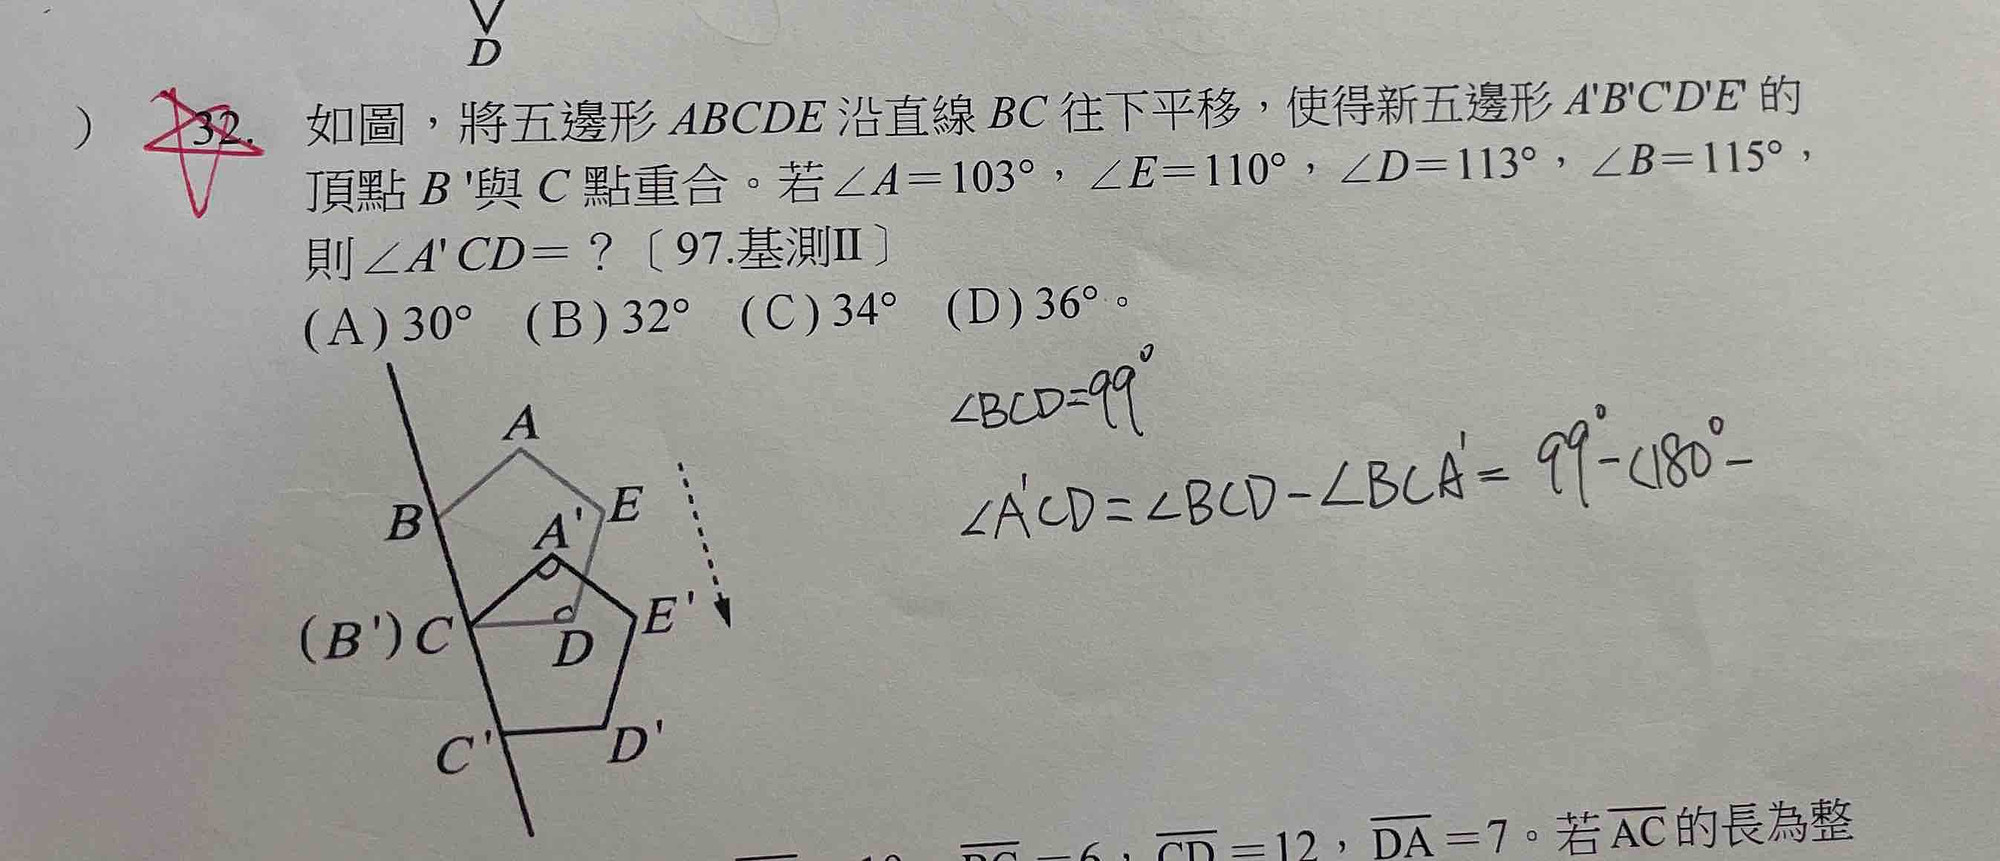 D
) 32. 如圖，將五邊形 ABCDE 沿直線 BC 往下平移，使得新五邊形 A'B'C'D'E' 的
頂點 B '與 C 點重合。若∠A＝103°，∠E＝110°，∠D＝113°，∠B＝115°，
則∠A' CD＝？〔97.基測II〕
(A)30° (B)32° (C)34° (D)36°。
∠BCD=99°
∠A'CD=∠BCD-∠BCA'= 99°-(180°-
A
B
E
A'
(B') C
D
E'
C'
D'
＝6，CD＝12，DA＝7。若AC的長為整